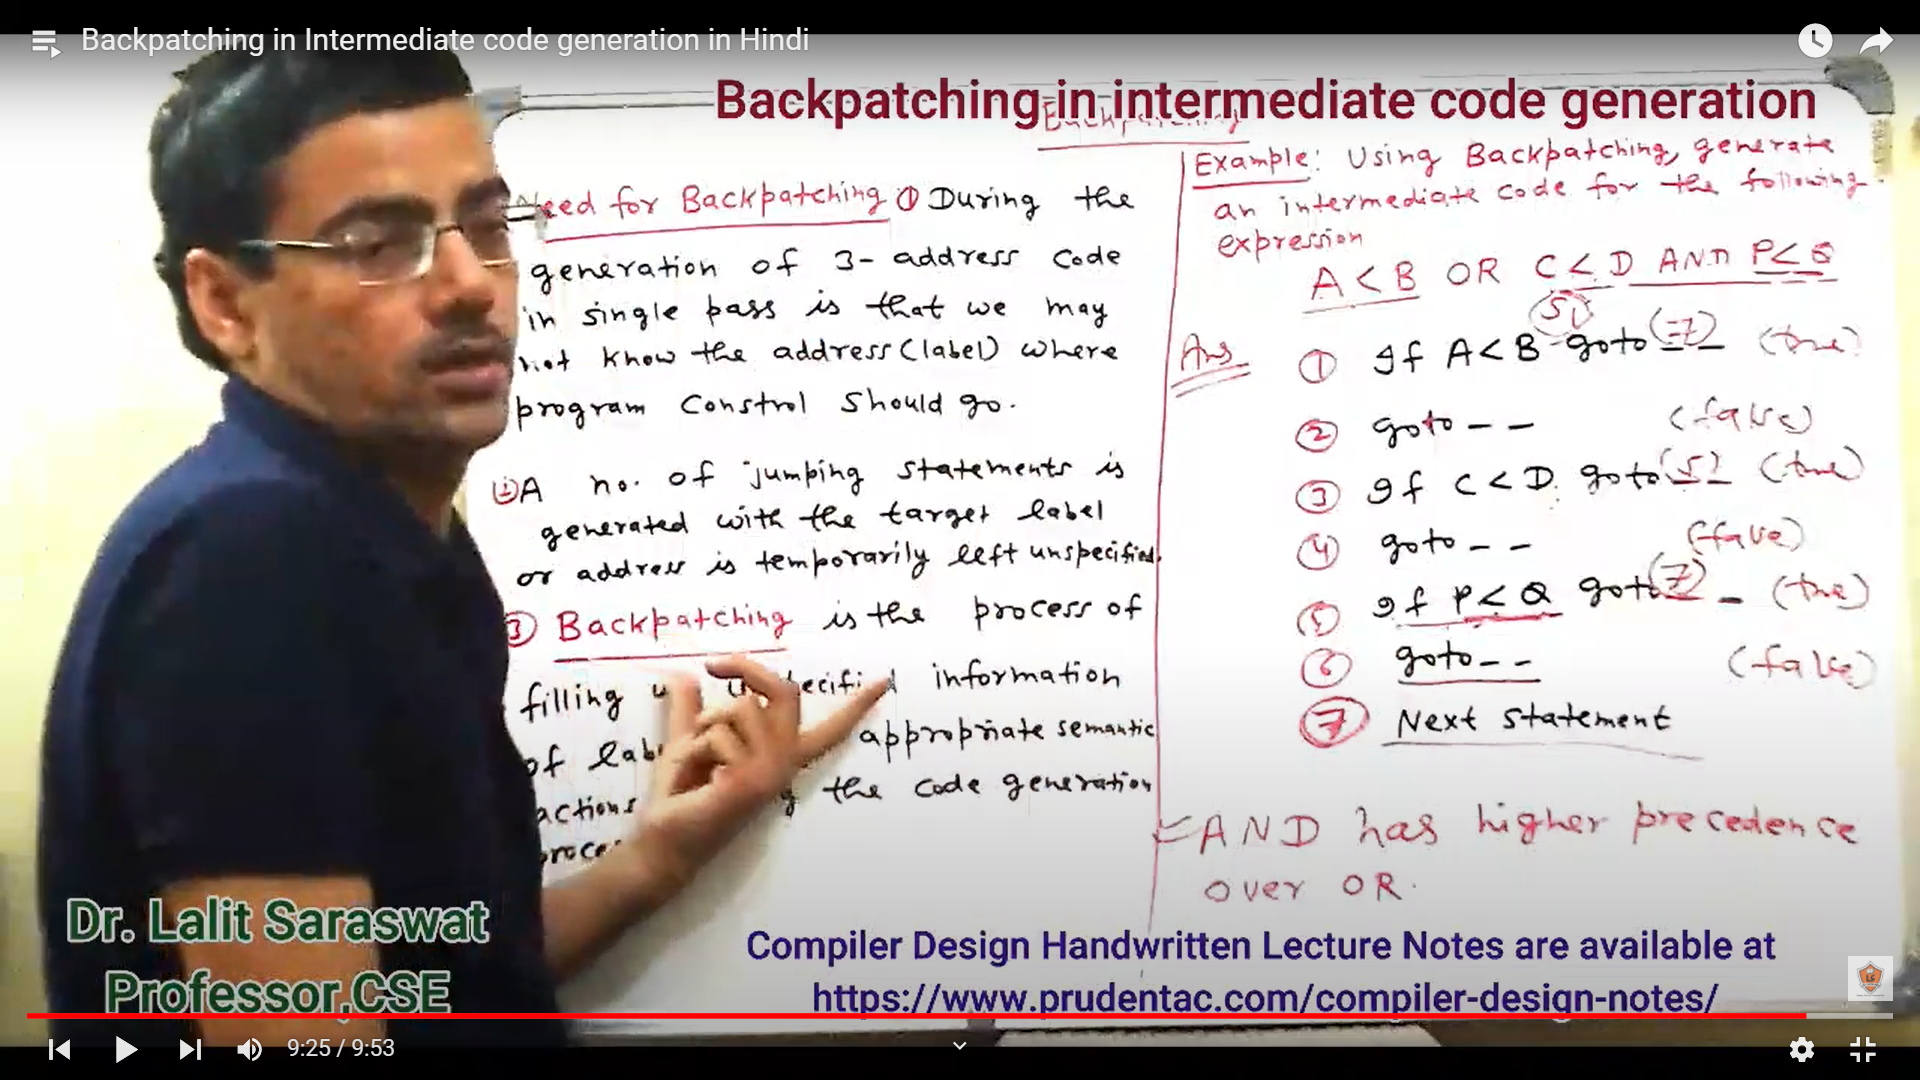 Backpatching in Intermediate code generation in Hindi
Backpatching in intermediate code generation
Backpatching
Need for Backpatching ① During the
generation of 3-address code
in single pass is that we may
not know the address (label) where
program Constrol should go.
A no. of jumping statements is
generated with the target label
or address is temporarily left unspecified.
③ Backpatching is the process of
filling information
of appropriate semantic
actions the code generation
Example: Using Backpatching, generate
an intermediate code for the following
expression
A < B OR C < D AND P < Q
Ans
① If A < B goto (7) (true)
② goto - - (false)
③ If C < D goto (5) (true)
④ goto - - (false)
⑤ If P < Q goto (7) - (true)
⑥ goto - - (false)
⑦ Next Statement
AND has higher precedence
over OR.
Dr. Lalit Saraswat
Professor,CSE
Compiler Design Handwritten Lecture Notes are available at
https://www.prudentac.com/compiler-design-notes/
9:25 / 9:53